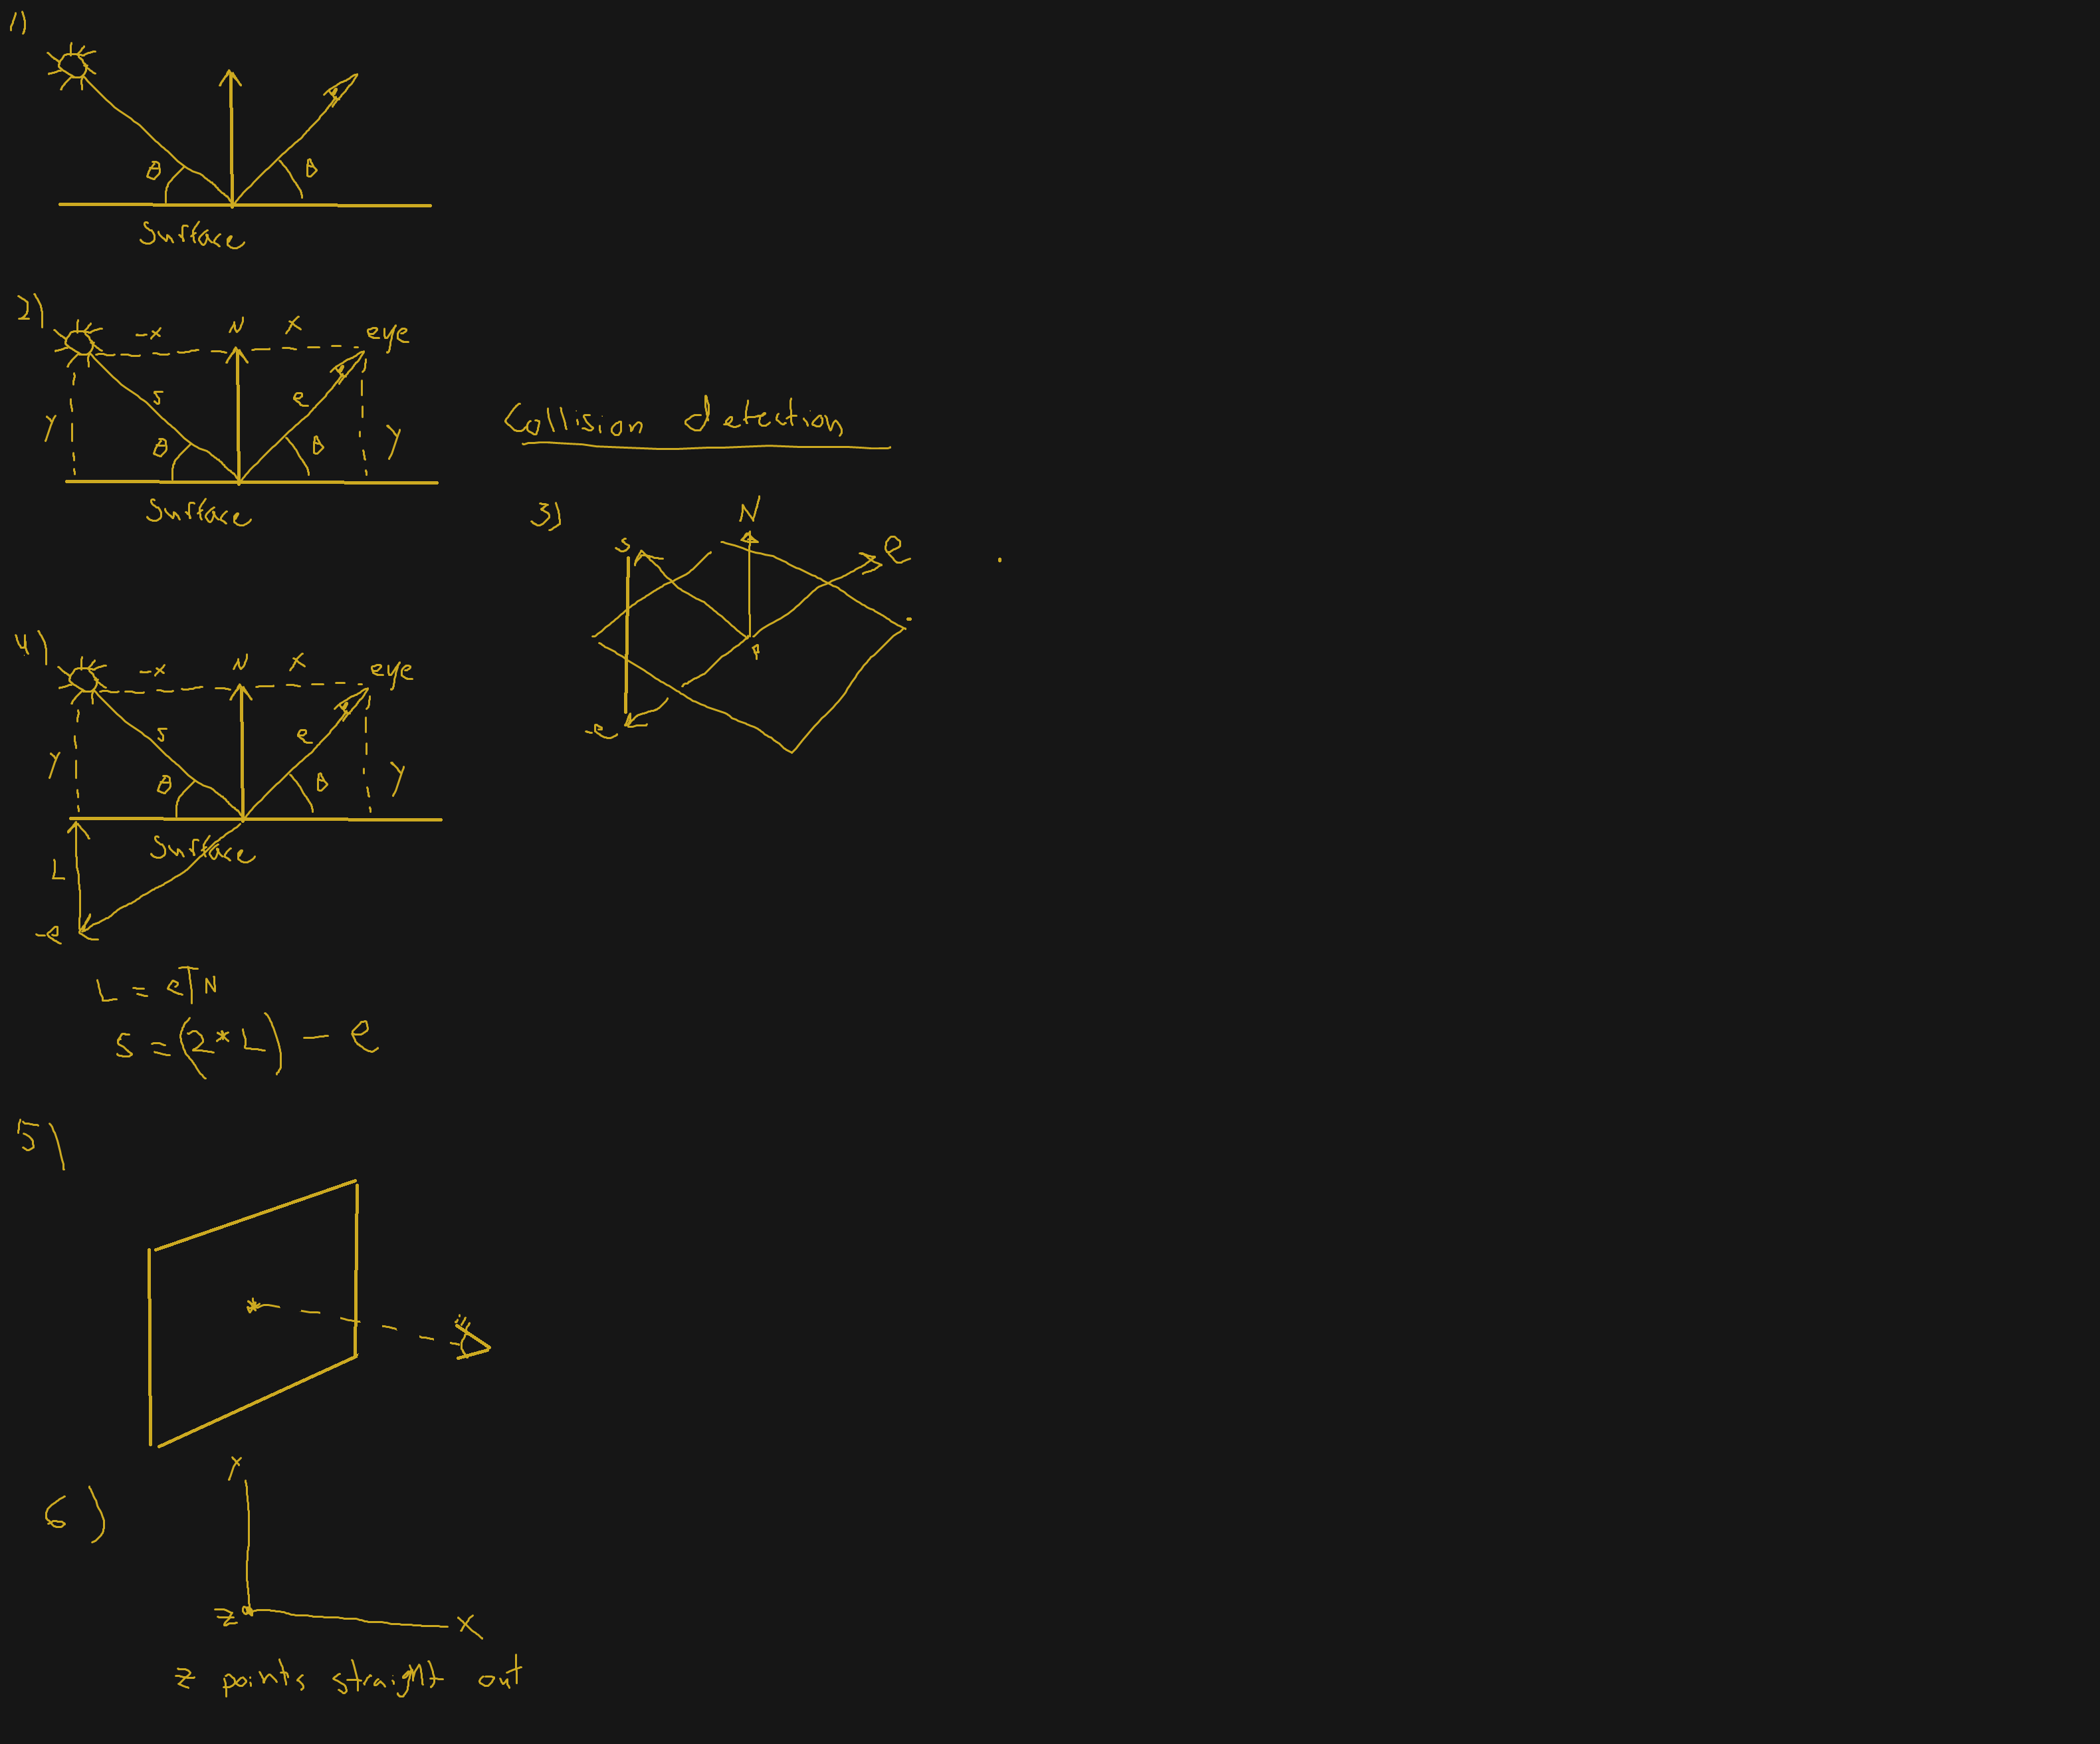 1)
θ θ
Surface
2)
-x N x eye
y s e y
θ θ
Surface
Collision detection
3)
N
s e
P
-e
4)
-x N x eye
y s e y
θ θ
Surface
L
-e
L = eTN
s = (2*L) - e
5)
6)
Y
Z X
z points straight out